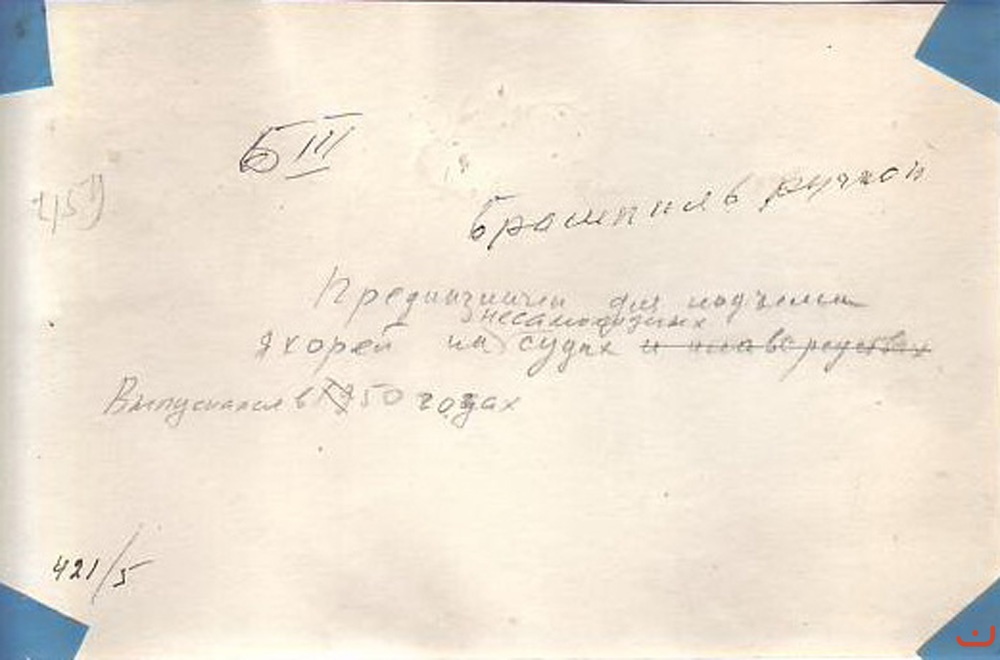 Б III
Брашпиль ручной
Предназначен для подъема
несамоходных
якорей на судах и плавсредствах
Выпускался в 50 годах
421/5